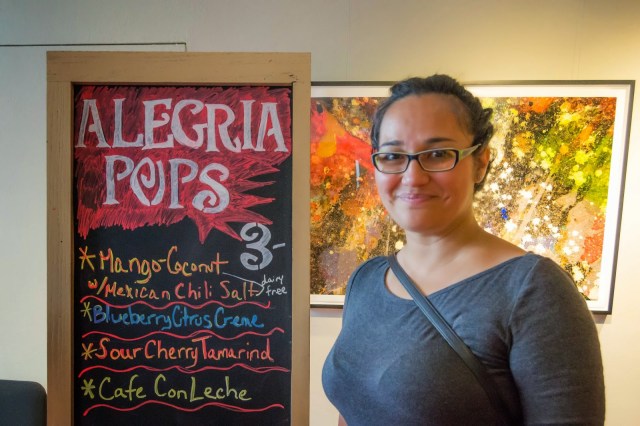 ALEGRIA
POPS
3-
*Mango-Coconut
w/Mexican Chili Salt
dairy
free
*BlueberryCitrusCreme
*Sour Cherry Tamarind
*Cafe Con Leche